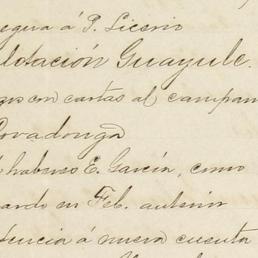 segura á P. Licerio
ldtación Guayule.
gos con cartas al campam
Covadonga
haberes E. García, como
ardo en Feb. anterior
tencia á nueva cuenta